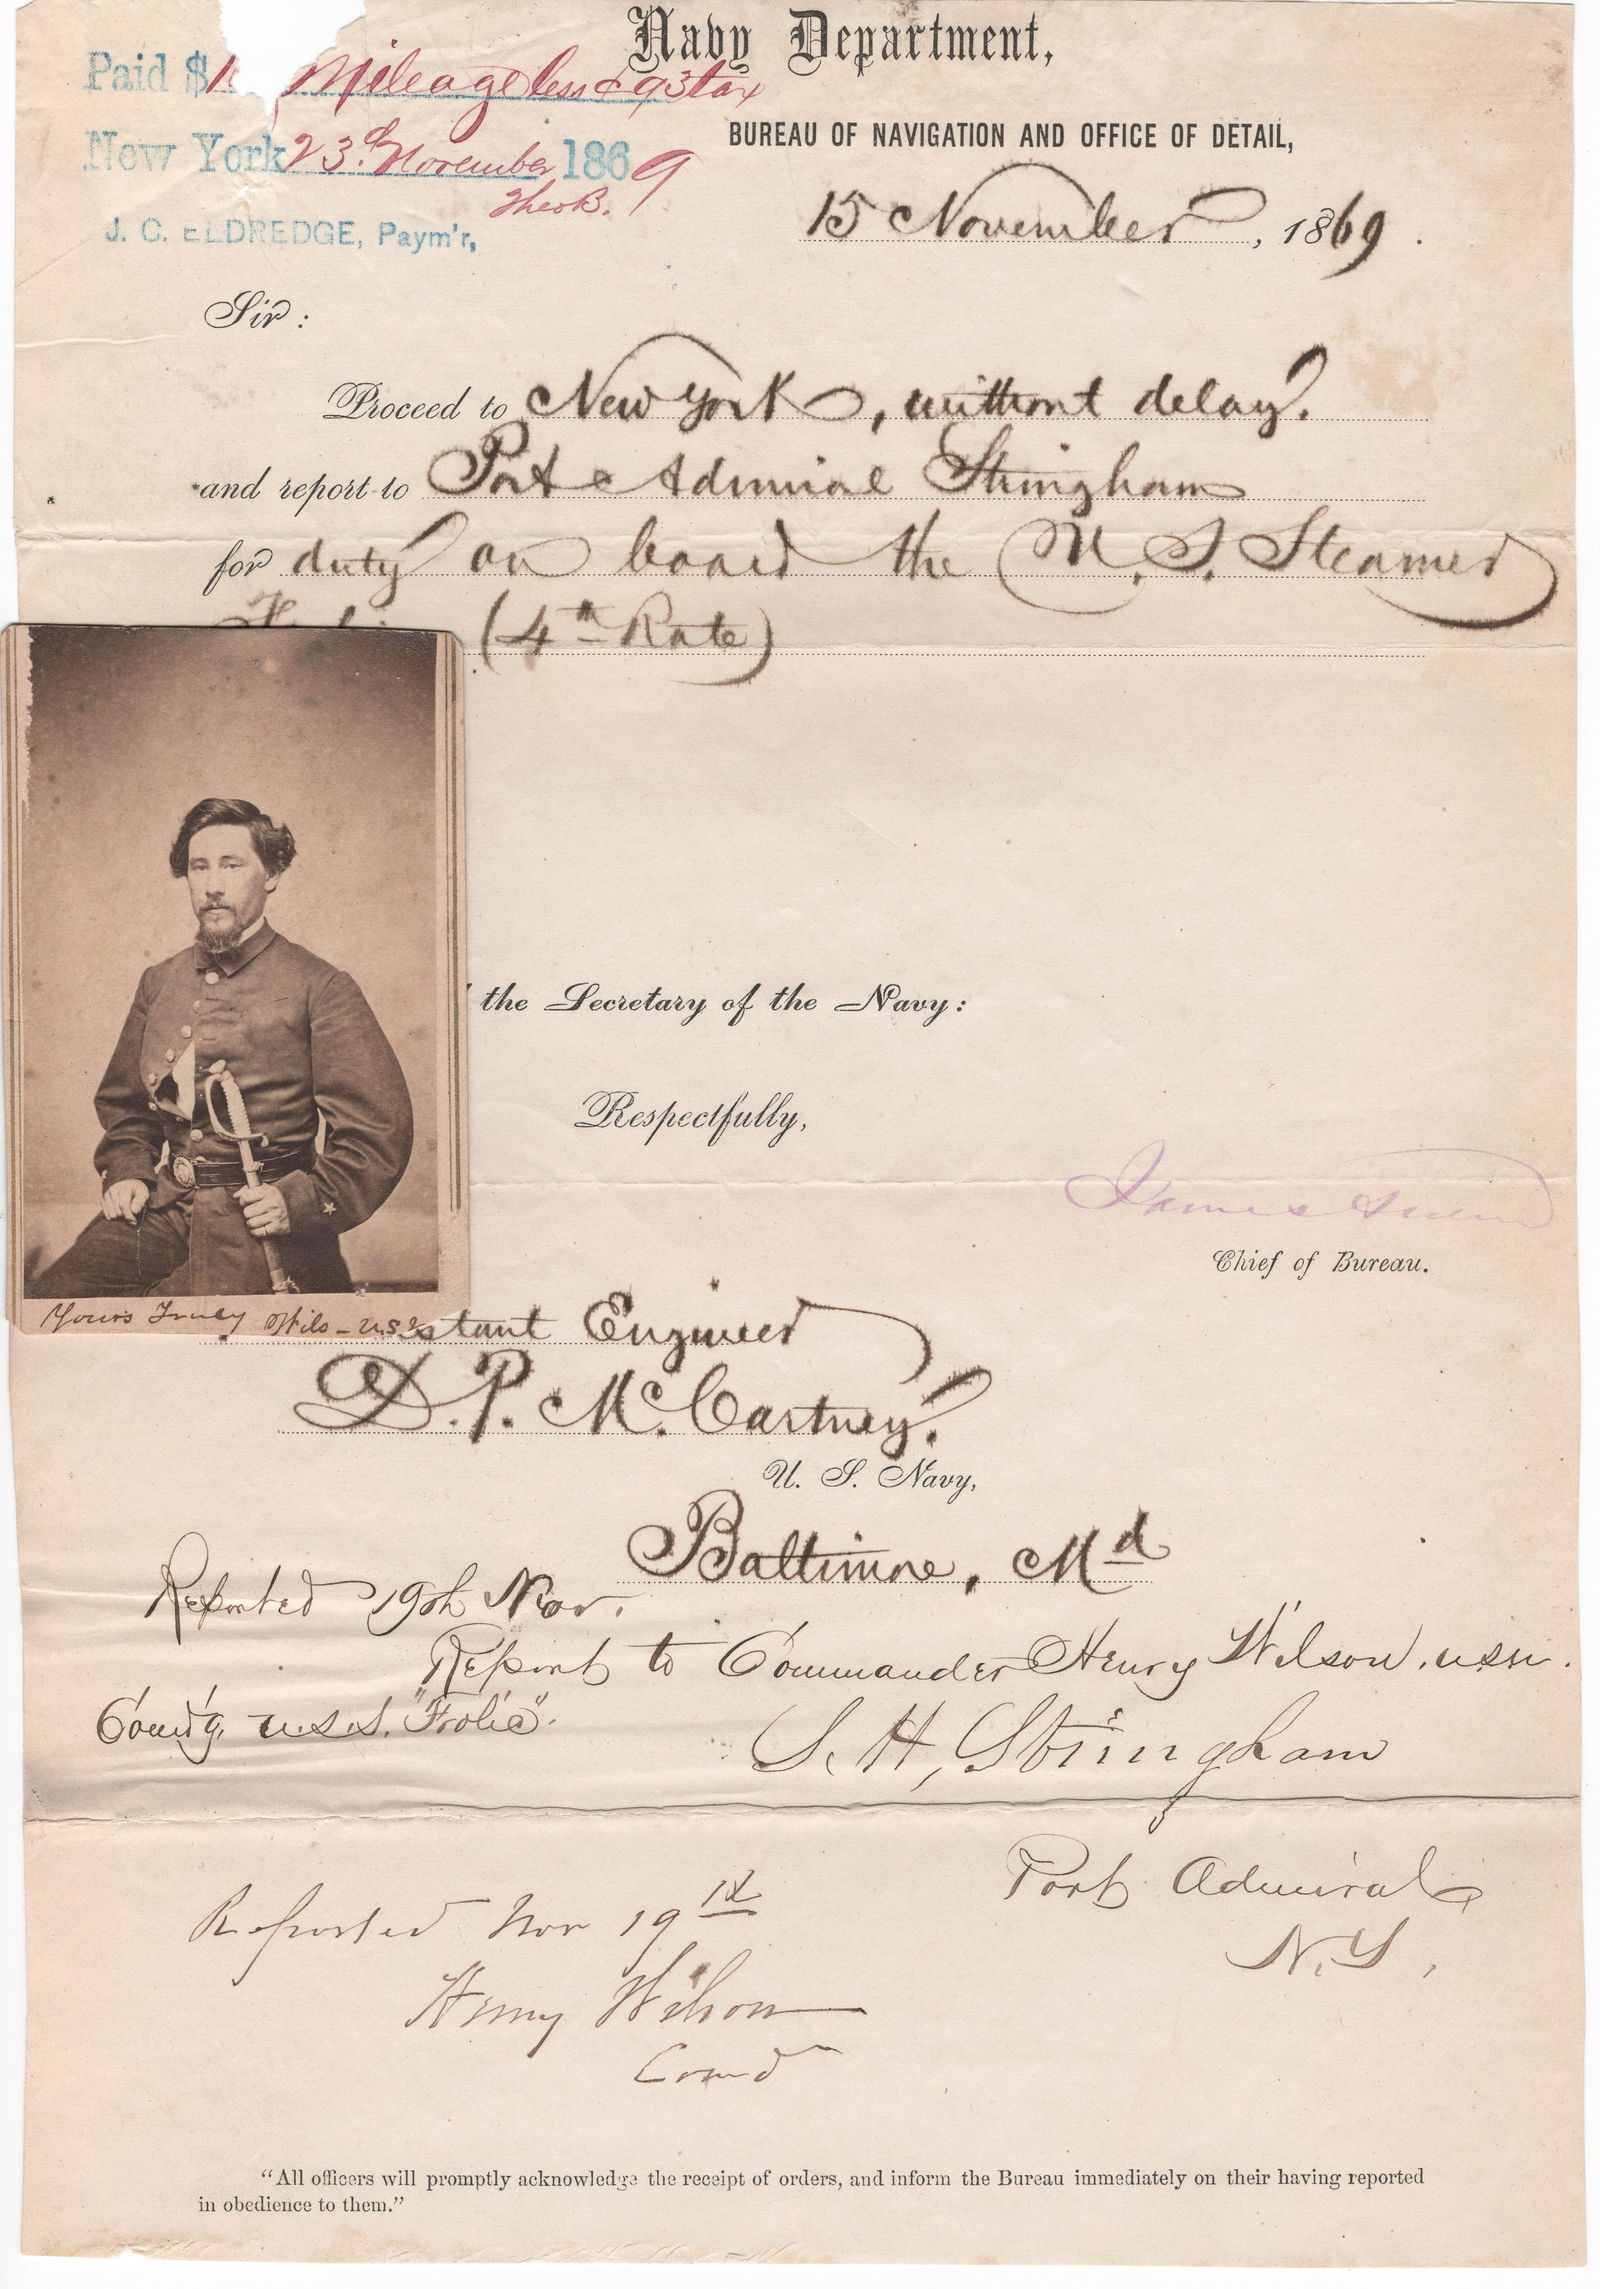 Navy Department,
Paid $ Mileage less 93 tax
BUREAU OF NAVIGATION AND OFFICE OF DETAIL,
New York 23d November 1869
J. C. ELDREDGE, Paym'r,
15 November, 1869.
Sir:
Proceed to New York, without delay.
and report to Port Admiral Stringham
for duty on board the U. S. Steamer
(4th Rate)
the Secretary of the Navy:
Respectfully,
James
Chief of Bureau.
Yours Truly
Engineer
D. P. McCartney.
U. S. Navy,
Baltimore, Md
Reported 19th Nov.
Report to Commander Henry Wilson, USN.
Comd'g. U.S.S. "Frolic".
S. H, Stringham
Port Admiral
N.Y,
Reported Nov 19
Henry Wilson
Comd
"All officers will promptly acknowledge the receipt of orders, and inform the Bureau immediately on their having reported
in obedience to them."